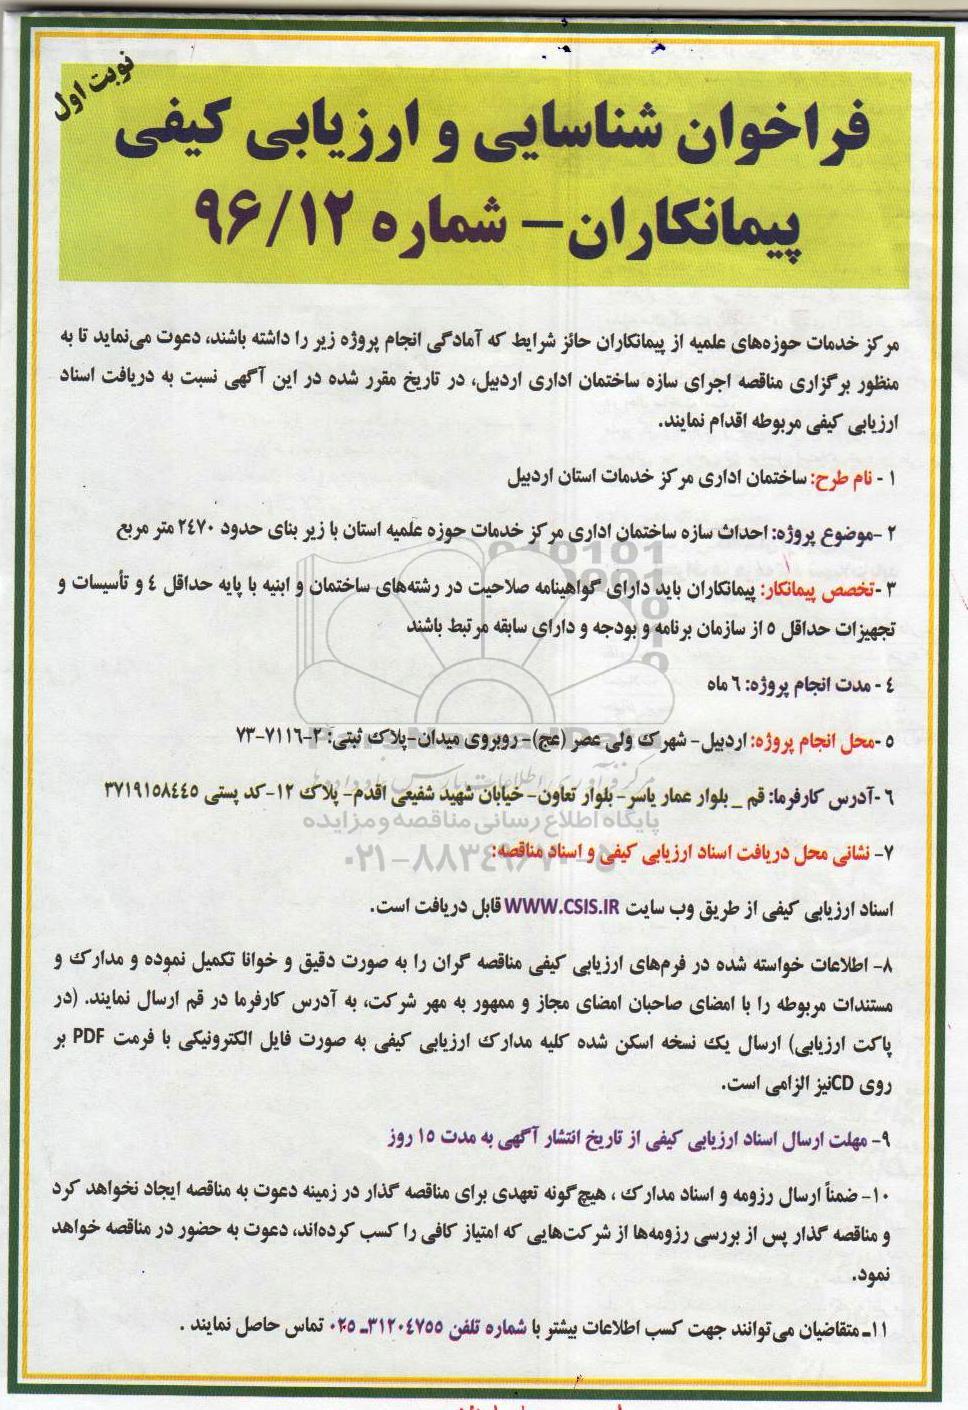 نوبت اول
فراخوان شناسایی و ارزیابی کیفی
پیمانکاران– شماره ۹۶/۱۲
مرکز خدمات حوزه‌های علمیه از پیمانکاران حائز شرایط که آمادگی انجام پروژه زیر را داشته باشند، دعوت می‌نماید تا به
منظور برگزاری مناقصه اجرای سازه ساختمان اداری اردبیل، در تاریخ مقرر شده در این آگهی نسبت به دریافت اسناد
ارزیابی کیفی مربوطه اقدام نمایند.
۱ - نام طرح: ساختمان اداری مرکز خدمات استان اردبیل
۲ -موضوع پروژه: احداث سازه ساختمان اداری مرکز خدمات حوزه علمیه استان با زیر بنای حدود ۲۴۷۰ متر مربع
۳ -تخصص پیمانکار: پیمانکاران باید دارای گواهینامه صلاحیت در رشته‌های ساختمان و ابنیه با پایه حداقل ٤ و تأسیسات و
تجهیزات حداقل ۵ از سازمان برنامه و بودجه و دارای سابقه مرتبط باشند
٤ - مدت انجام پروژه: ۶ ماه
۵ -محل انجام پروژه: اردبیل- شهرک ولی عصر (عج)- روبروی میدان-پلاک ثبتی: ۲-۷۱۱۶-۷۳
۶ -آدرس کارفرما: قم _ بلوار عمار یاسر- بلوار تعاون- خیابان شهید شفیعی اقدم- پلاک ۱۲-کد پستی ۳۷۱۹۱۵۸٤٤۵
مرکز فرآوری اطلاعات پارس نماد داده ها
پایگاه اطلاع رسانی مناقصه و مزایده
۷- نشانی محل دریافت اسناد ارزیابی کیفی و اسناد مناقصه:
اسناد ارزیابی کیفی از طریق وب سایت WWW.CSIS.IR قابل دریافت است.
۸- اطلاعات خواسته شده در فرم‌های ارزیابی کیفی مناقصه گران را به صورت دقیق و خوانا تکمیل نموده و مدارک و
مستندات مربوطه را با امضای صاحبان امضای مجاز و ممهور به مهر شرکت، به آدرس کارفرما در قم ارسال نمایند. (در
پاکت ارزیابی) ارسال یک نسخه اسکن شده کلیه مدارک ارزیابی کیفی به صورت فایل الکترونیکی با فرمت PDF بر
روی CDنیز الزامی است.
۹- مهلت ارسال اسناد ارزیابی کیفی از تاریخ انتشار آگهی به مدت ۱۵ روز
۱۰- ضمناً ارسال رزومه و اسناد مدارک ، هیچ‌گونه تعهدی برای مناقصه گذار در زمینه دعوت به مناقصه ایجاد نخواهد کرد
و مناقصه گذار پس از بررسی رزومه‌ها از شرکت‌هایی که امتیاز کافی را کسب کرده‌اند، دعوت به حضور در مناقصه خواهد
نمود.
۱۱ـ متقاضیان می‌توانند جهت کسب اطلاعات بیشتر با شماره تلفن ۳۱۲۰٤۷۵۵ـ ۰۲۵ تماس حاصل نمایند .